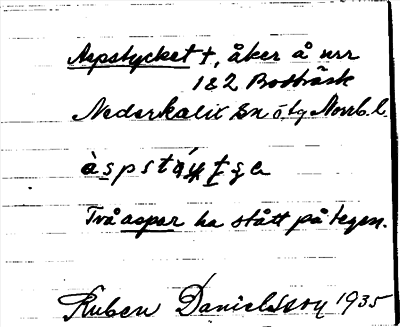 Aspstycket +, åker å nrr
1 & 2 Bodträsk
Nederkalix sn ö. lg Norrb. l.
Två aspar ha stått på tegen.
Ruben Danielsson 1935